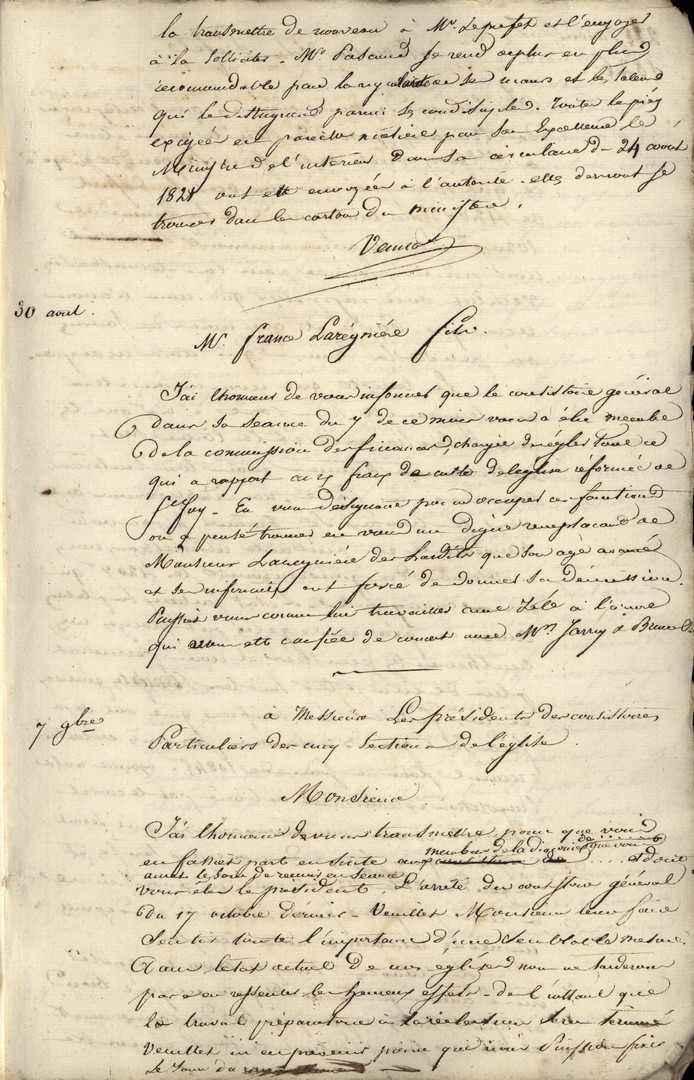 la transmettre de nouveau à Mr. le prefet et l'engager
à la solliciter. Mr. se rend de plus en plus
recommandable par la regularité de ses mœurs et les talens
qui le distinguent parmi ses condisciples. Toutes les pièces
exigées en pareille matière par son Excellence le
Ministre de l'interieur dans sa circulaire du 24 aout
1821 ont été envoyées à l'autorité. elles devront se
trouver dans les cartons du ministère.
30 aout.
Mr. france Laregnière fils.
J'ai l'honneur de vous informer que le consistoire général
dans sa seance du 7 de ce mois vous a élu membre
de la commission des finances, chargée de régler tout ce
qui a rapport aux frais de culte de l'eglise réformée de
Ste foy. En vous désignant pour occuper ces fonctions
on a pensé trouver en vous un digne remplaçant de
Monsieur Laregnière des que son age avancé
et ses infirmités ont forcé de donner sa démission.
Puissiez vous comme lui travailler avec zèle à l'œuvre
qui vous est confiée de concert avec Mrs Jarry &
7 9bre
à Messieurs Les présidents des consistoires
Particuliers des cinq sections de l'église.
Monsieur
J'ai l'honneur de vous transmettre, pour que vous
en fassiez part en suite aux membres de la diaconie de ..... dont
que vous
aurez le soin de reunir en seance
vous êtes le president, L'arrété du consistoire général
du 17 octobre dernier. Veuillez Monsieur leur faire
sentir toute l'importance d'une semblable mesure.
Dans l'etat actuel de nos églises nous ne tarderons
pas à en ressentir les heureux effets. dès l'instant que
le travail préparatoire à la sera terminé
veuillez m'en prevenir pour que nous puissions fixer
le jour du